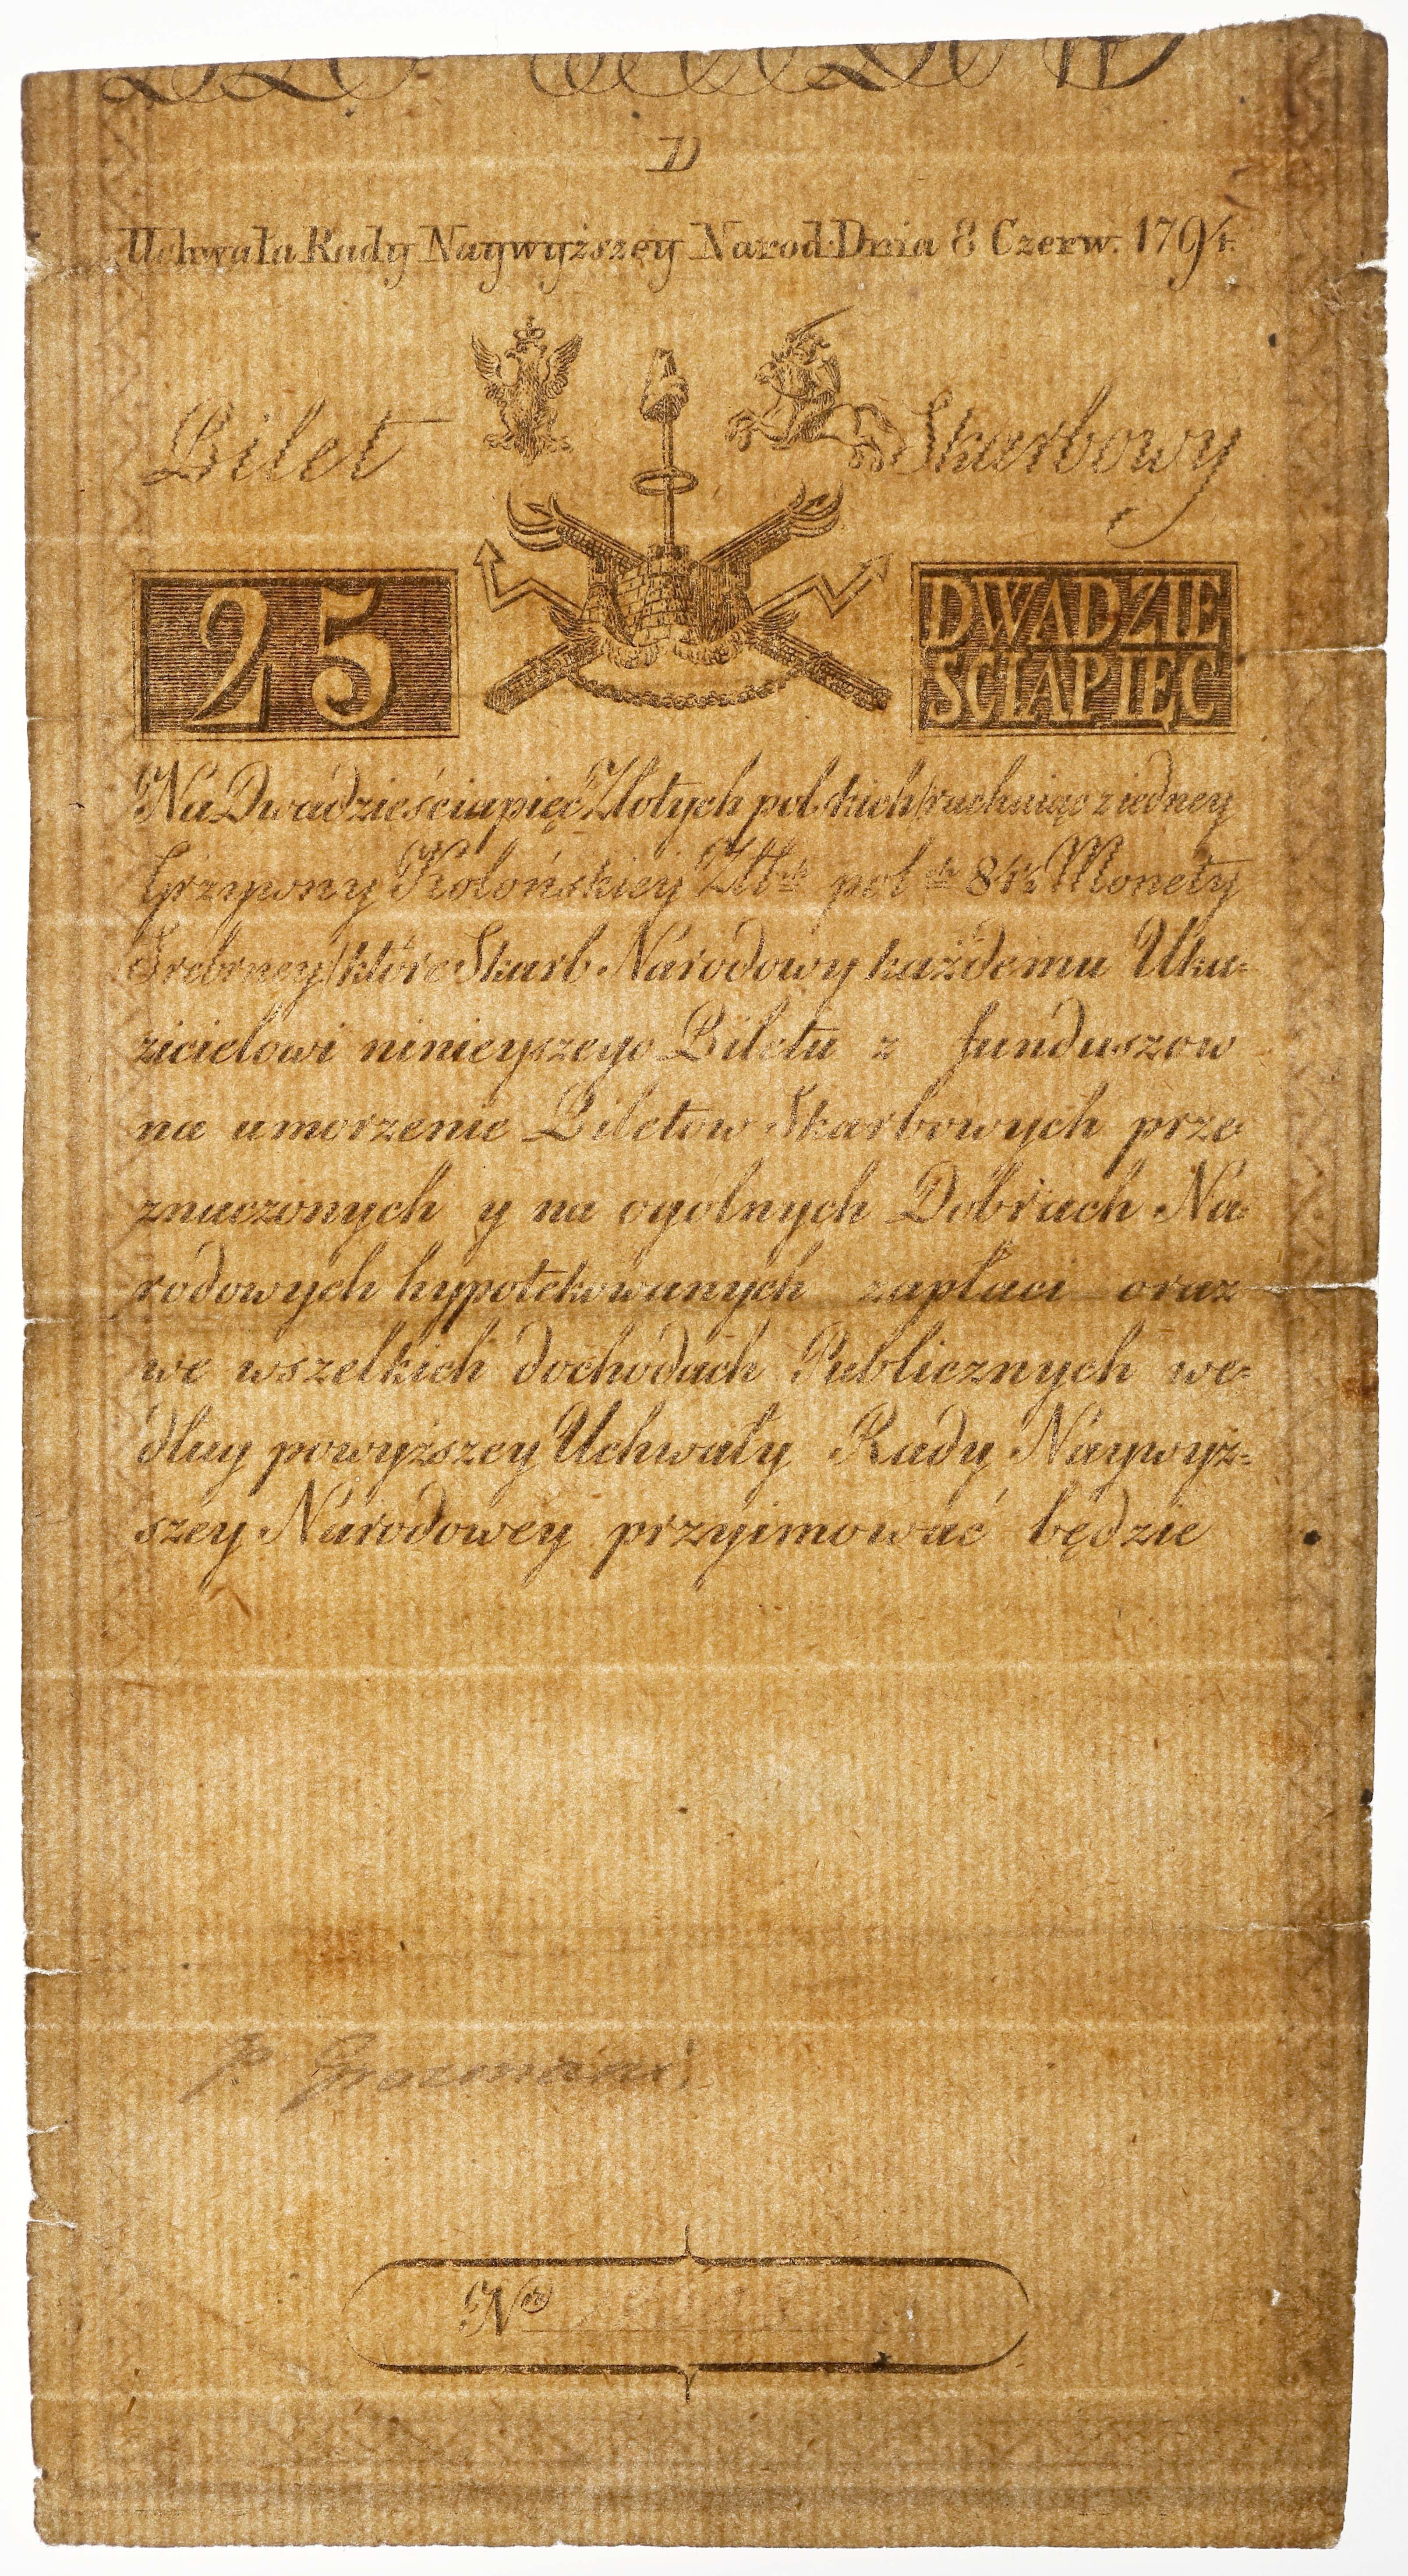 D
Uchwała Rady Naywyższey Narod: Dnia 8 Czerw. 1794r.
Bilet Skarbowy
25
DWADZIE
SCIAPIĘC
Na Dwadzieściapięć Złotych polskich/rachuiąc z iedney
Grzywny Kolońskiey Złłch polch 84½ Monety
Srebrney/które Skarb Narodowy każdemu Uka=
zicielowi ninieyszego Biletu z funduszow
na umorzenie Biletow Skarbowych prze
znaczonych y na ogolnych Dobrach Na=
rodowych hypotekowanych zapłaci oraz
we wszelkich dochodach Publicznych we=
dług powyższey Uchwały Rady Naywyż=
szey Narodowey przyimować będzie
Nro